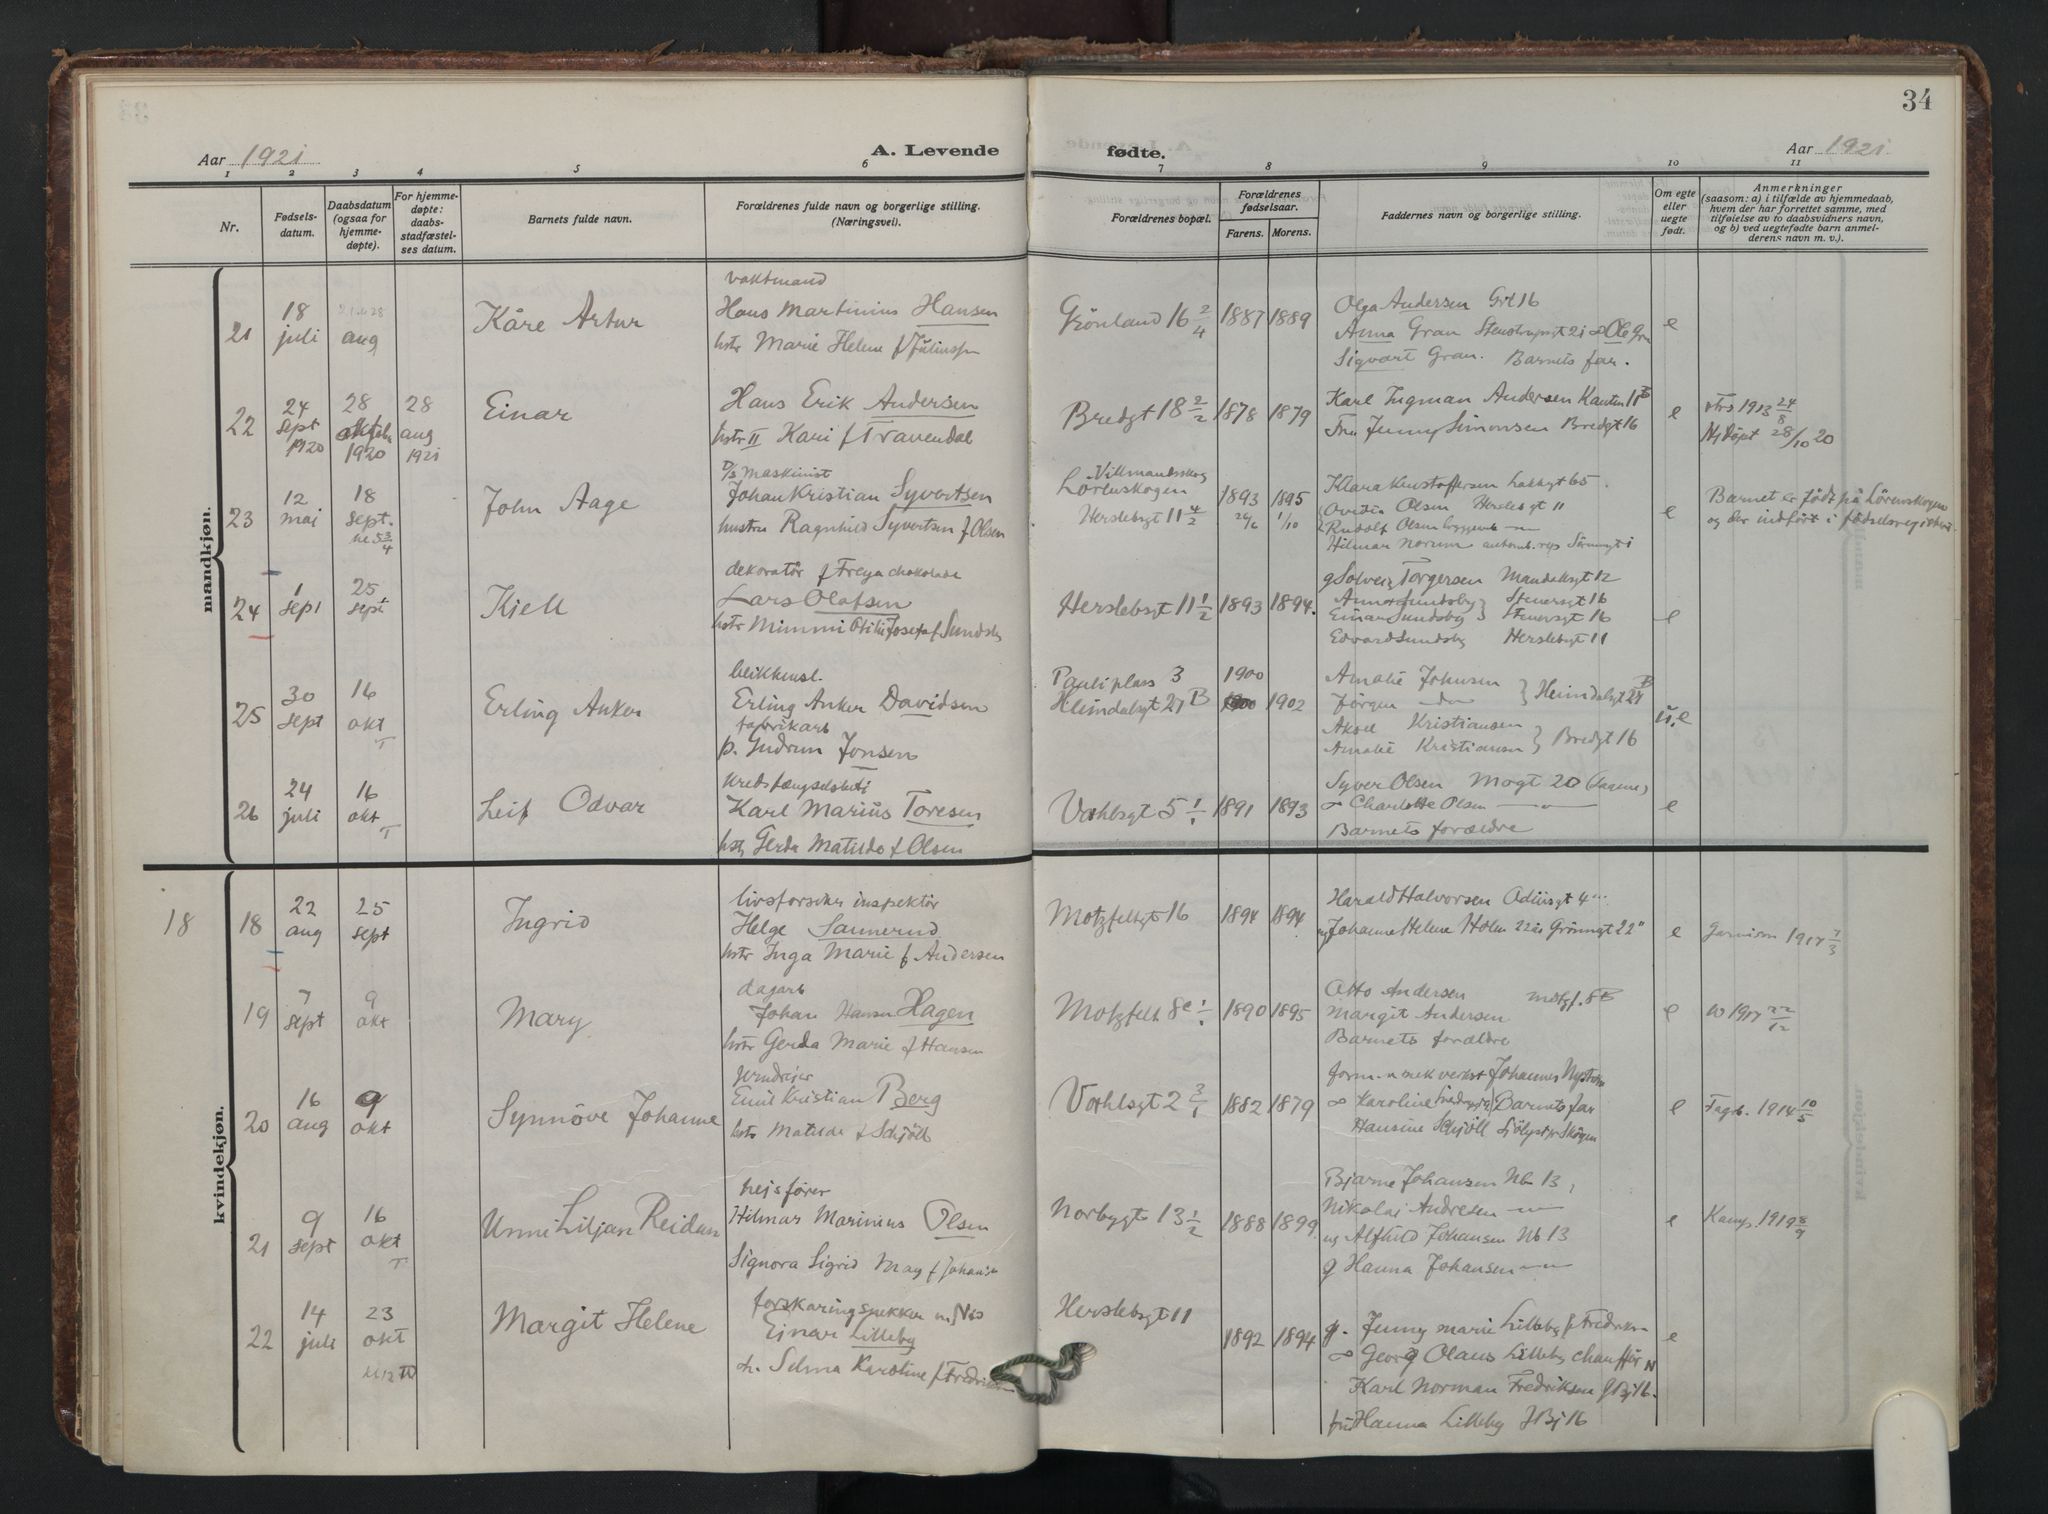 34
Aar 1921
A. Levende
fødte.
Aar 1921
1 2 3 4 5 6 7 8 9 10 11
Nr.
Fødsels-
datum.
Daabsdatum
(ogsaa for
hjemme-
døpte).
For hjemme-
døpte:
daabs-
stadfæstel-
ses datum.
Barnets fulde navn.
Forældrenes fulde navn og borgerlige stilling.
(Næringsvei).
Forældrenes bopæl.
Forældrenes
fødselsaar.
Farens. Morens.
Faddernes navn og borgerlige stilling.
Om egte
eller
uegte
født.
Anmerkninger
(saasom: a) i tilfælde av hjemmedaab,
hvem der har forrettet samme, med
tilføielse av to daabsvidners navn,
og b) ved uegtefødte barn anmel-
derens navn m. v.).
mandkjøn.
21
18
juli
28
aug
Kåre Artur
vaktmand
Hans Martinius Hansen
hstr Marie Helene f
Grönland 16 2/4
1887 1889
Olga Andersen Grl 16
Anna Gran
Sigvart Gran. Barnets far.
e
22
24
sept
1920
28
1920
28
aug
1921
Einar
Hans Erik Andersen
hstr II Kari f Travendal
Bredgt 18 2/2
1878 1879
Karl Ingman Andersen
Fru Jenny Simonsen Bredgt 16
e
1913 24/8
Hjdöpt 28/10 20
23
12
mai
18
sept.
kl 5 3/4
John Aage
D/S maskinist
Johan Kristian Syvertsen
hustru Ragnhild Syvertsen f Olsen
Villmandsskog
Lörenskogen
Herslebsgt 11 4/2
1893 1895
26/6 1/10
Klara Kristoffersen Lakkegt 65.
Olsen Herslebgt 11
Rudolf Olsen
Hilmar Norum
e
Barnet er født på Lörenskogen
og der indført i fødselsregistret.
24
1
sept
25
sept
Kjell
dekoratör f Freya chokolade
Lars Olafsen
hstr Mimmi Josefa f Sundsby
Herslebsgt 11 1/2
1893 1894.
g Solveig Torgersen 12
Sundsby Stenersgt 16
Einar Sundsby Stenersgt 16
Edvard Sundsby Herslebgt 11
e
25
30
sept
16
okt
T
Erling Anker
blikkensl.
Erling Anker Davidsen
fabrikarb
p. Gudrun Jonsen
Pauliplass 3
Heimdalsgt 27 B
1900
1902
Amalie Johnsen
Jörgen — do — } Heimdalsgt 27 B
Aksel Kristiansen
Amalie Kristiansen } Bredgt 16
u.e
26
24
juli
16
okt
T
Leif Odvar
Karl Marius Toresen
hstr Gerda Matilde f Olsen
Vahlsgt 5 1/1
1891 1893
Syver Olsen Mogt 20 (Sagene)
∞ Charlotte Olsen — " —
Barnets forældre
e
kvindekjøn.
18
18
22
aug
25
sept
Ingrid
livsforsikr inspektör
Helge Sannerud
hstr Inga Marie f Andersen
Motzfeltsgt 16
1894 1894
Harald Halvorsen Odinsgt 4
ug Johanne Helene Holm 22 år Grönnegt 22
e
Garnison 1917 7/3
19
7
sept
9
okt
Mary
dagarb
Johan Hansen Hagen
hstr Gerda Marie f Hansen
Motzfelt 8c 1/1
1890 1895
Otto Andersen motzf. 8 B
Margit Andersen
Barnets forældre
e
1917 22/12
20
16
aug
9
okt
Synnöve Johanne
jerndreier
Emil Kristian Berg
hstr Matilde f Schjöll
Vahlsgt 2 3/1
1882 1879
Johannes Nyström
∞ Karoline Barnets far
Hansine Schjöll
e
Fagerb. 1914 10/5
21
9
sept
16
okt
T
Unni Liljan Reidun
heisfører
Hilmar Marinius Olsen
Signora Sigrid May f Johansen
Norbygt 13 1/2
1888 1899
Bjarne Johansen Nb 13,
Nikolai Andresen — " —
ug Alfhild Johansen Nb 13
g Hanna Johansen — " —
e
Kamp. 1919 8/9
22
14
juli
23
okt
kl 12
Margit Helene
Einar Lilleby
h. Selma Karoline f Fredriksen
Herslebsgt 11
1892 1894
g. Jenny Marie Lilleby f Fredriksen
∞ Georg Olaus Lilleby chauffør
Karl Norman Fredriksen
fru Hanna Lilleby
e